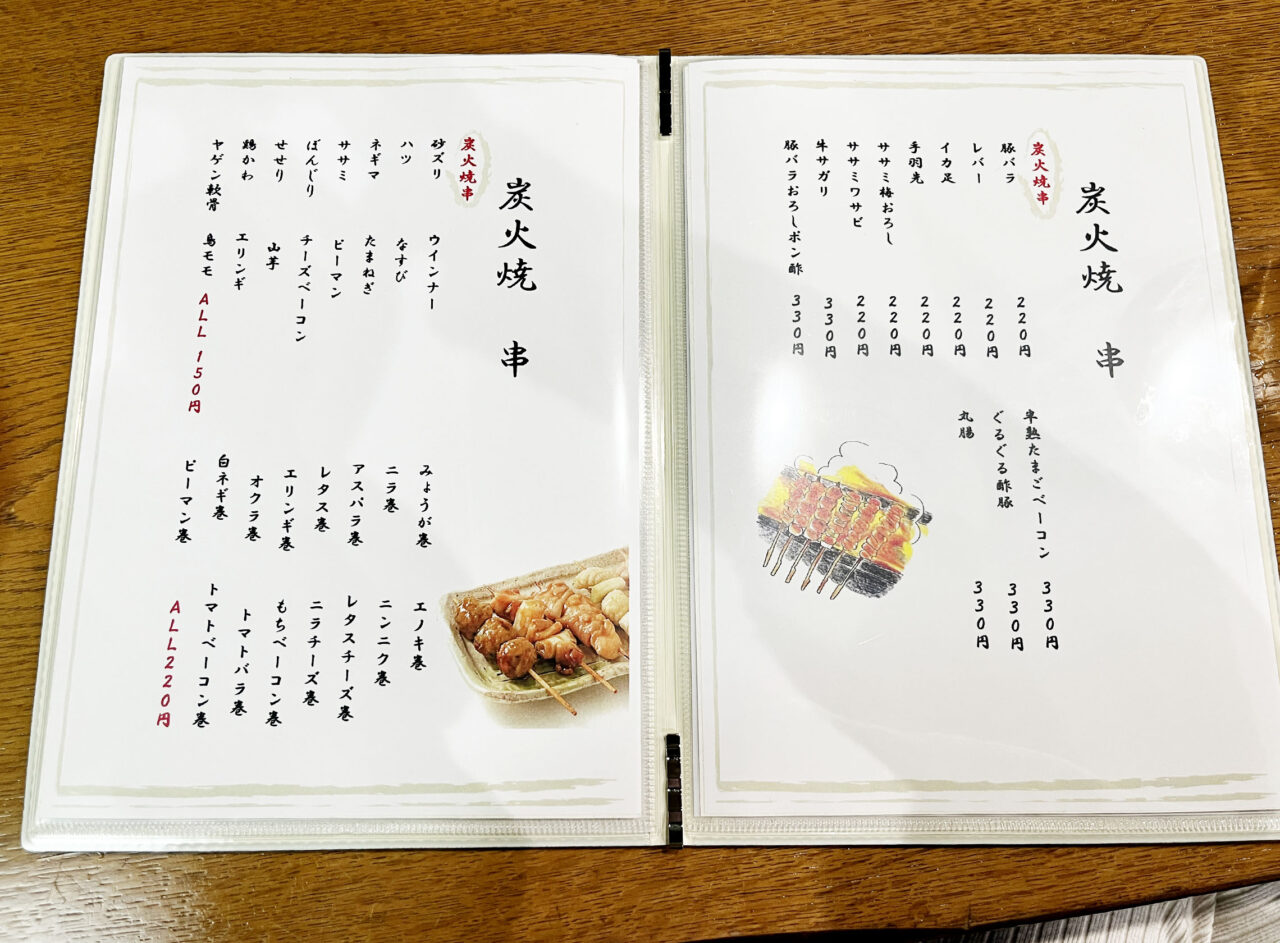 炭火焼 串
炭火焼串
豚バラ 220円
レバー 220円
イカ足 220円
手羽先 220円
ササミ梅おろし 220円
ササミワサビ 220円
牛サガリ 330円
豚バラおろしポン酢 330円
半熟たまごベーコン 330円
ぐるぐる酢豚 330円
丸腸 330円
炭火焼 串
炭火焼串
砂ズリ
ハツ
ネギマ
ササミ
ぼんじり
せせり
鶏かわ
ヤゲン軟骨
ウインナー
なすび
たまねぎ
ピーマン
チーズベーコン
山芋
エリンギ
鳥モモ
ALL 150円
みょうが巻
ニラ巻
アスパラ巻
レタス巻
エリンギ巻
オクラ巻
白ネギ巻
ピーマン巻
エノキ巻
ニンニク巻
レタスチーズ巻
ニラチーズ巻
もちベーコン巻
トマトバラ巻
トマトベーコン巻
ALL220円